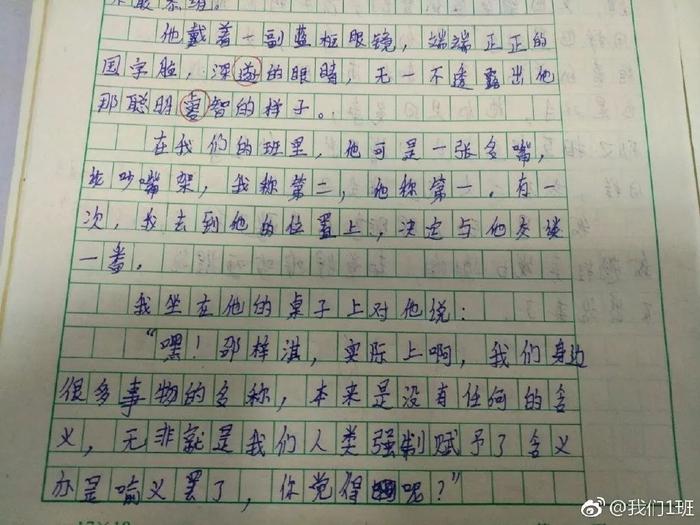 他戴着一副蓝框眼镜，端端正正的
国字脸，深邃的眼睛，无一不透露出他
那聪明睿智的样子。
在我们的班里，他可是一张多嘴，
论吵嘴架，我称第二，他称第一。有一
次，我去到他的位置上，决定与他交谈
一番。
我坐在他的桌子上对他说：
“嘿！邵样淇，实际上啊，我们身边
很多事物的名称，本来是没有任何的含
义，无非就是我们人类强制赋予了含义
亦是喻义罢了，你觉得呢？”
@我们1班